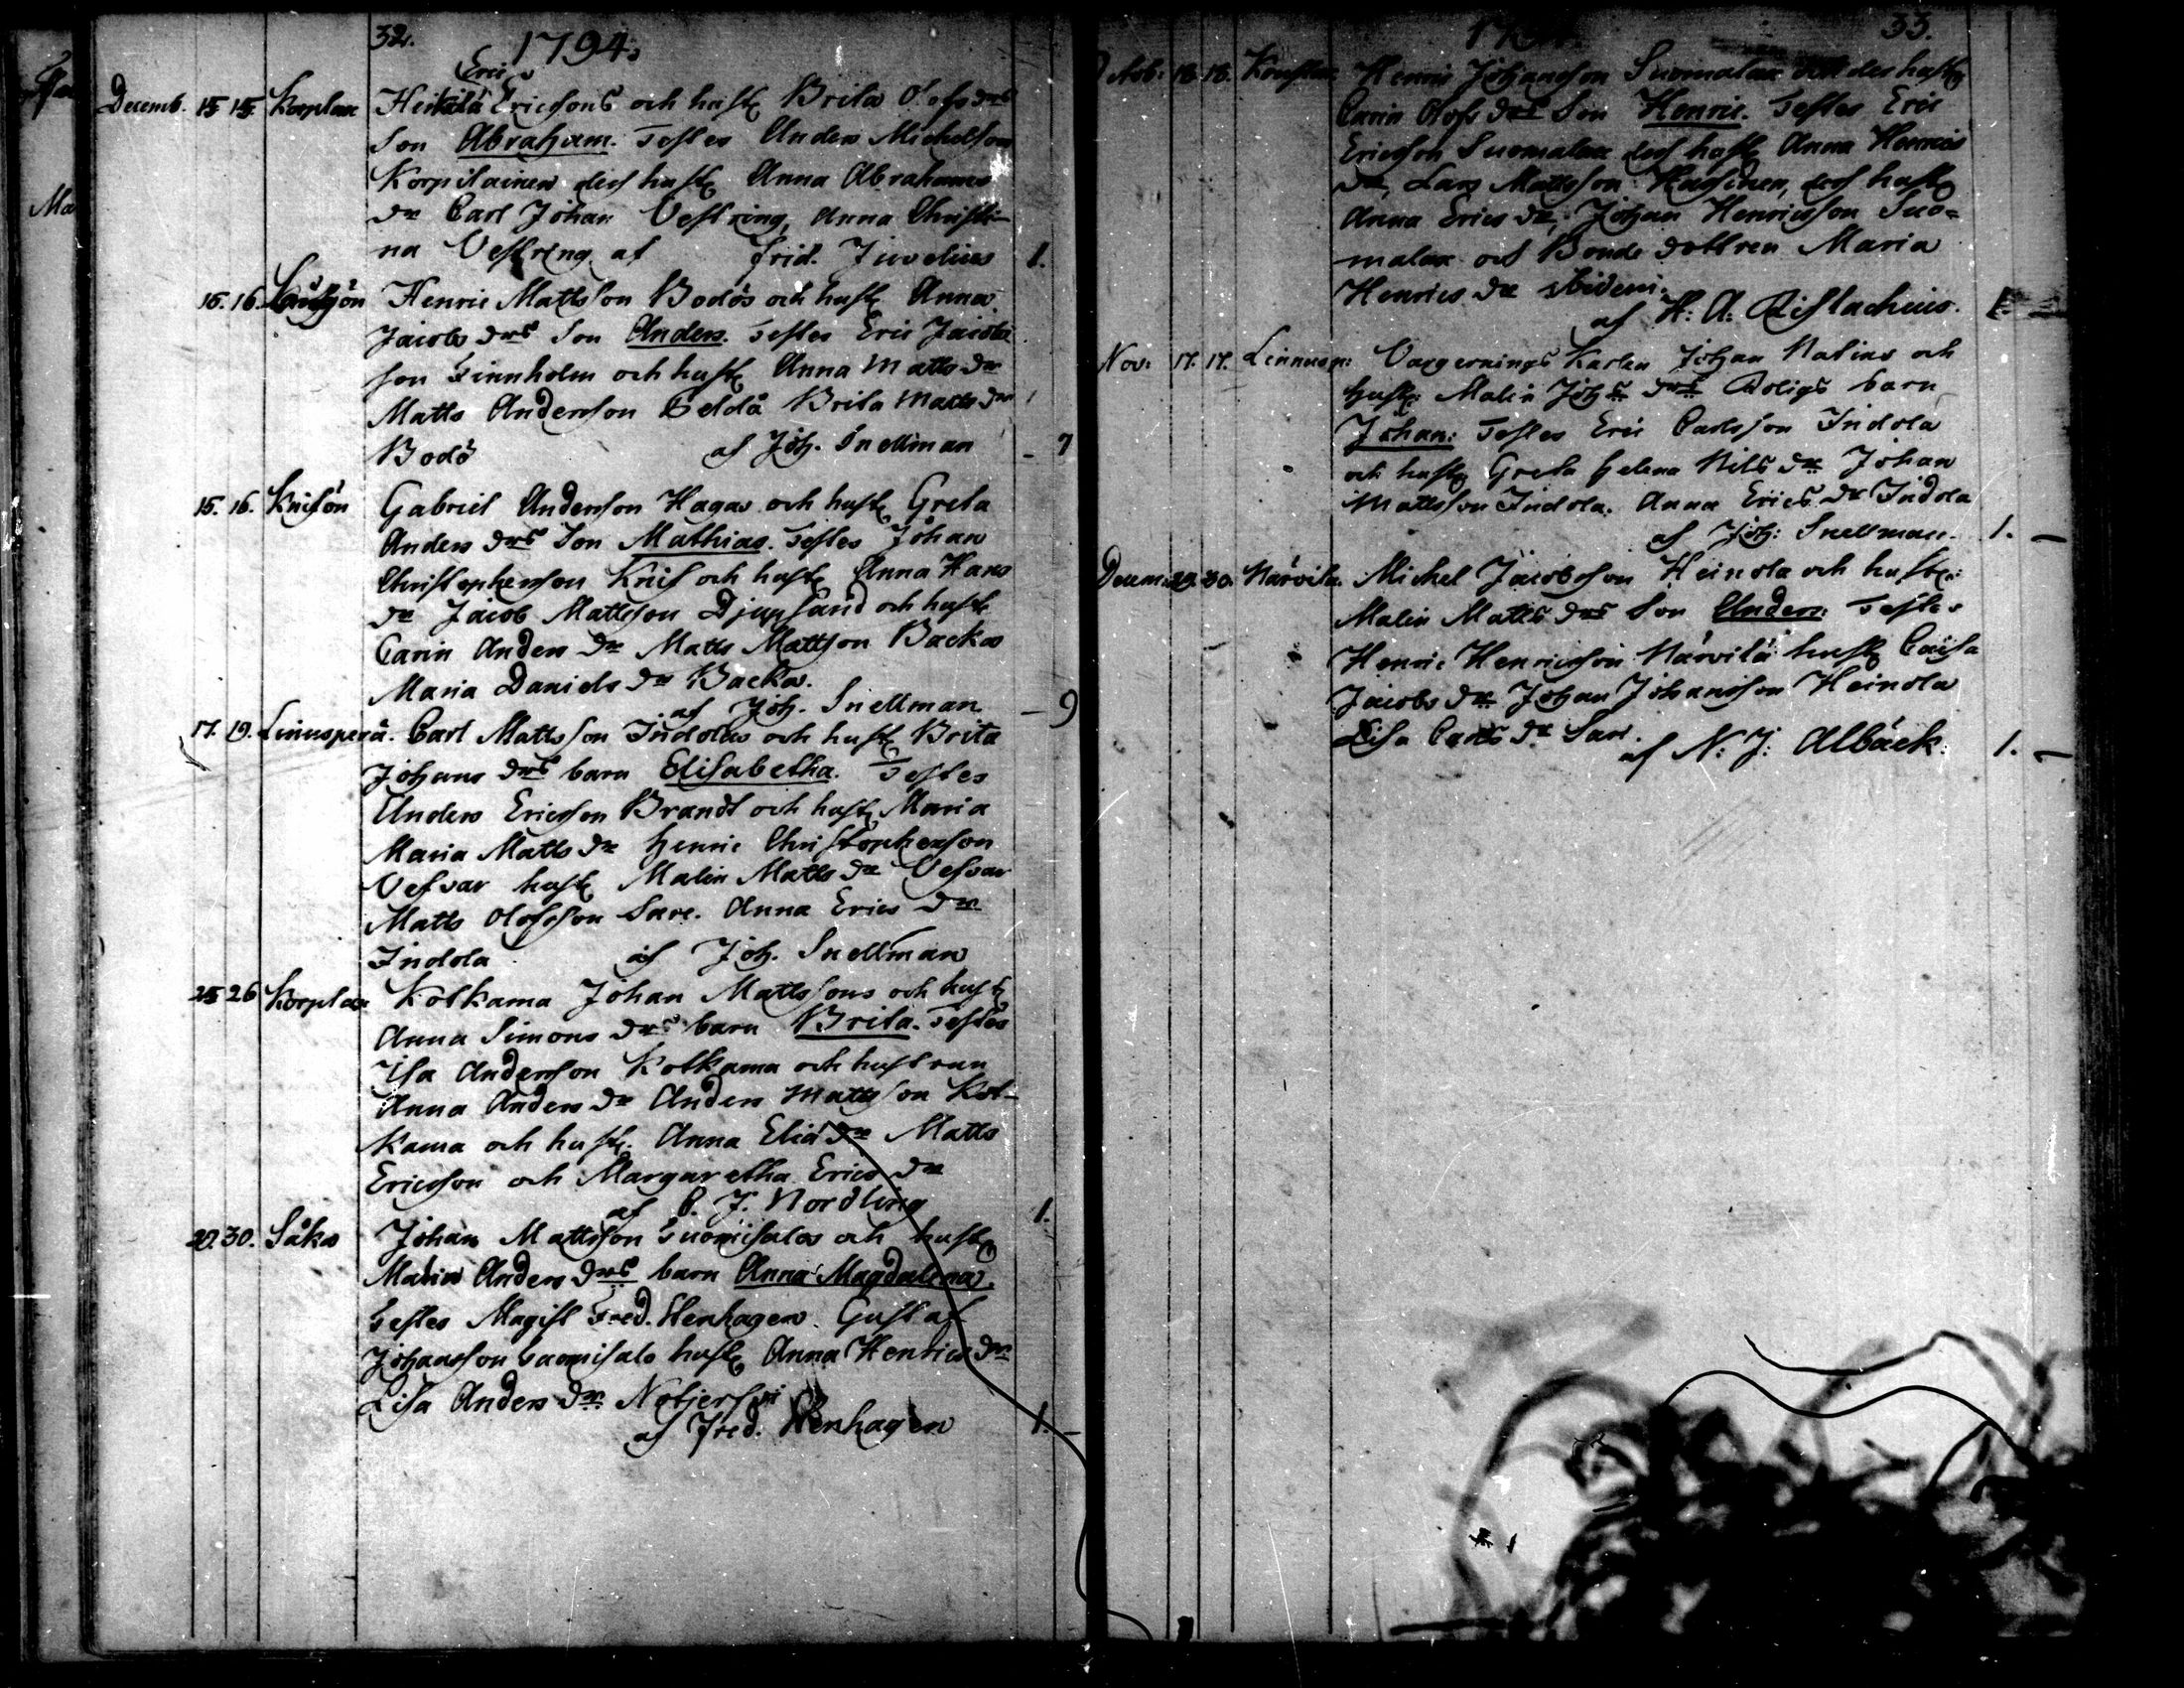 32.
1794.
Eric
Decemb. 15 15. Korplax Heikilä Ericsons och hust. Brita Olofs drs
Son Abraham. Testes Anders Michelson
Korpilainen des hust. Anna Abrahams
dr Carl Johan Vestring, Anna Christi-
na Vestring. af Frid. Juvelius 1.
15. 16. Henric Mattsson Bodös och hust. Anna
Jacobs drs Son Anders. Testes Eric Jacobs
son Finnholm och hust. Anna Matts dr
Matts Anderson Brita Matts dr
Bodö af Joh. Snellman 7
15. 16. Knifön Gabriel Anderson Hagas och hust. Greta
Anders drs Son Mathias. Testes Johan
Christopherson Knif och hust. Anna Hans
dr Jacob Mattsson Djupsund och hust.
Carin Anders dr Matts Mattson Backa
Maria Daniels dr Backa.
af Joh. Snellman 9
17. 19. Linusperä. Carl Mattsson Indolas och hust. Brita
Johans drs barn Elisabetha. Testes
Anders Ericsson Brandt och hust. Maria
Maria Matts dr Henric Christopherson
Vesvar hust. Malin Matts dr Vesvar
Matts Olofsson Sare. Anna Erics dr
Indola af Joh. Snellman
25 26 Korplax Kolkama Johan Mattssons och hust.
Anna Simons drs barn Brita. Testes
Isa Anderson Kolkama och hustrun
Anna Anders dr Anders Mattsson Kol-
kama och hust. Anna Eliä dr Matts
Ericsson och Margaretha Erics dr
af P. J. Nordling 1.
29. 30. Såka Johan Mattsson Suomisalos och hust.
Malin Anders drs barn Anna Magdalena.
Testes Magist Fred. Stenhagen. Gustaf
Johansson Suomisalo hust. Anna Henrics dr
Lisa Anders dr
af Fred. Stenhagen 1.
33.
18. 18. Henric Johansson Suomalax och des hust.
Carin Olofs drs Son Henric. Testes Eric
Ericsson Suomalax des hust. Anna Henrics
dr, Lars Mattsson des hust.
Anna Erics dr, Johan Henricsson Suo-
malax och Bonde dottren Maria
Henrics dr ibidem.
af H: A: 1.
Nov: 17. 17. Linnusp: Vargernings Karlen Johan Natins och
hust: Malin Joh:s drs Roligs barn
Johan: Testes Eric Carlsson Indola
och hust. Greta Helena Nils dr Johan
Mattsson Indola. Anna Erics dr Indola
af Joh: Snellman. 1. –
Decem: 29. 30. Närvilä. Michel Jacobsson Heinola och hust:
Malin Matts drs Son Anders: Testes
Henric Henricsson Närvilä hust. Caisa
Jacobs dr Johan Johansson Heinola
Lisa Carls dr Sare.
af N: J: Albäck. 1. –